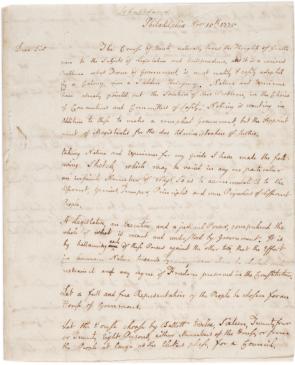 Philadelphia Nov. 15th 1775
Dear Sir
The Course of Events naturally turns the Thoughts of Gentle
men to the Subjects of Legislation and Jurisprudence, and it is a curious
Problem what Form of Government, is most readily & easily adopted
by a Colony, upon a Sudden Emergency. Nature and Experience
have already pointed out the Solution of this Problem, in the Choice
of Conventions and Committees of Safety. Nothing is wanting in
Addition to these to make a compleat Government, but the Appoint
ment of Magistrates for the due Administration of Justice.
Taking Nature and Experience for my Guide I have made the follow
ing Sketch, which may be varied in any one particular
an infinite Number of Ways So as to accommodate it to the
different, Genius, Temper, Principles and even Prejudices of different
People.
A Legislative, an Executive and a judicial Power, comprehend the
whole of what is meant and understood by Government. It is
by ballancing each of these Powers against the other two, that the Effort
in humane Nature towards Tyranny, can alone be checked and
restrained and any degree of Freedom preserved in the Constitution.
Let a full and free Representation of the People be chosen for an
House of Commons.
Let the House choose by Ballott twelve, Sixteen, Twenty four
or Twenty Eight Persons, either Members of the House, or from
the People at Large as the Electors please, for a Council.